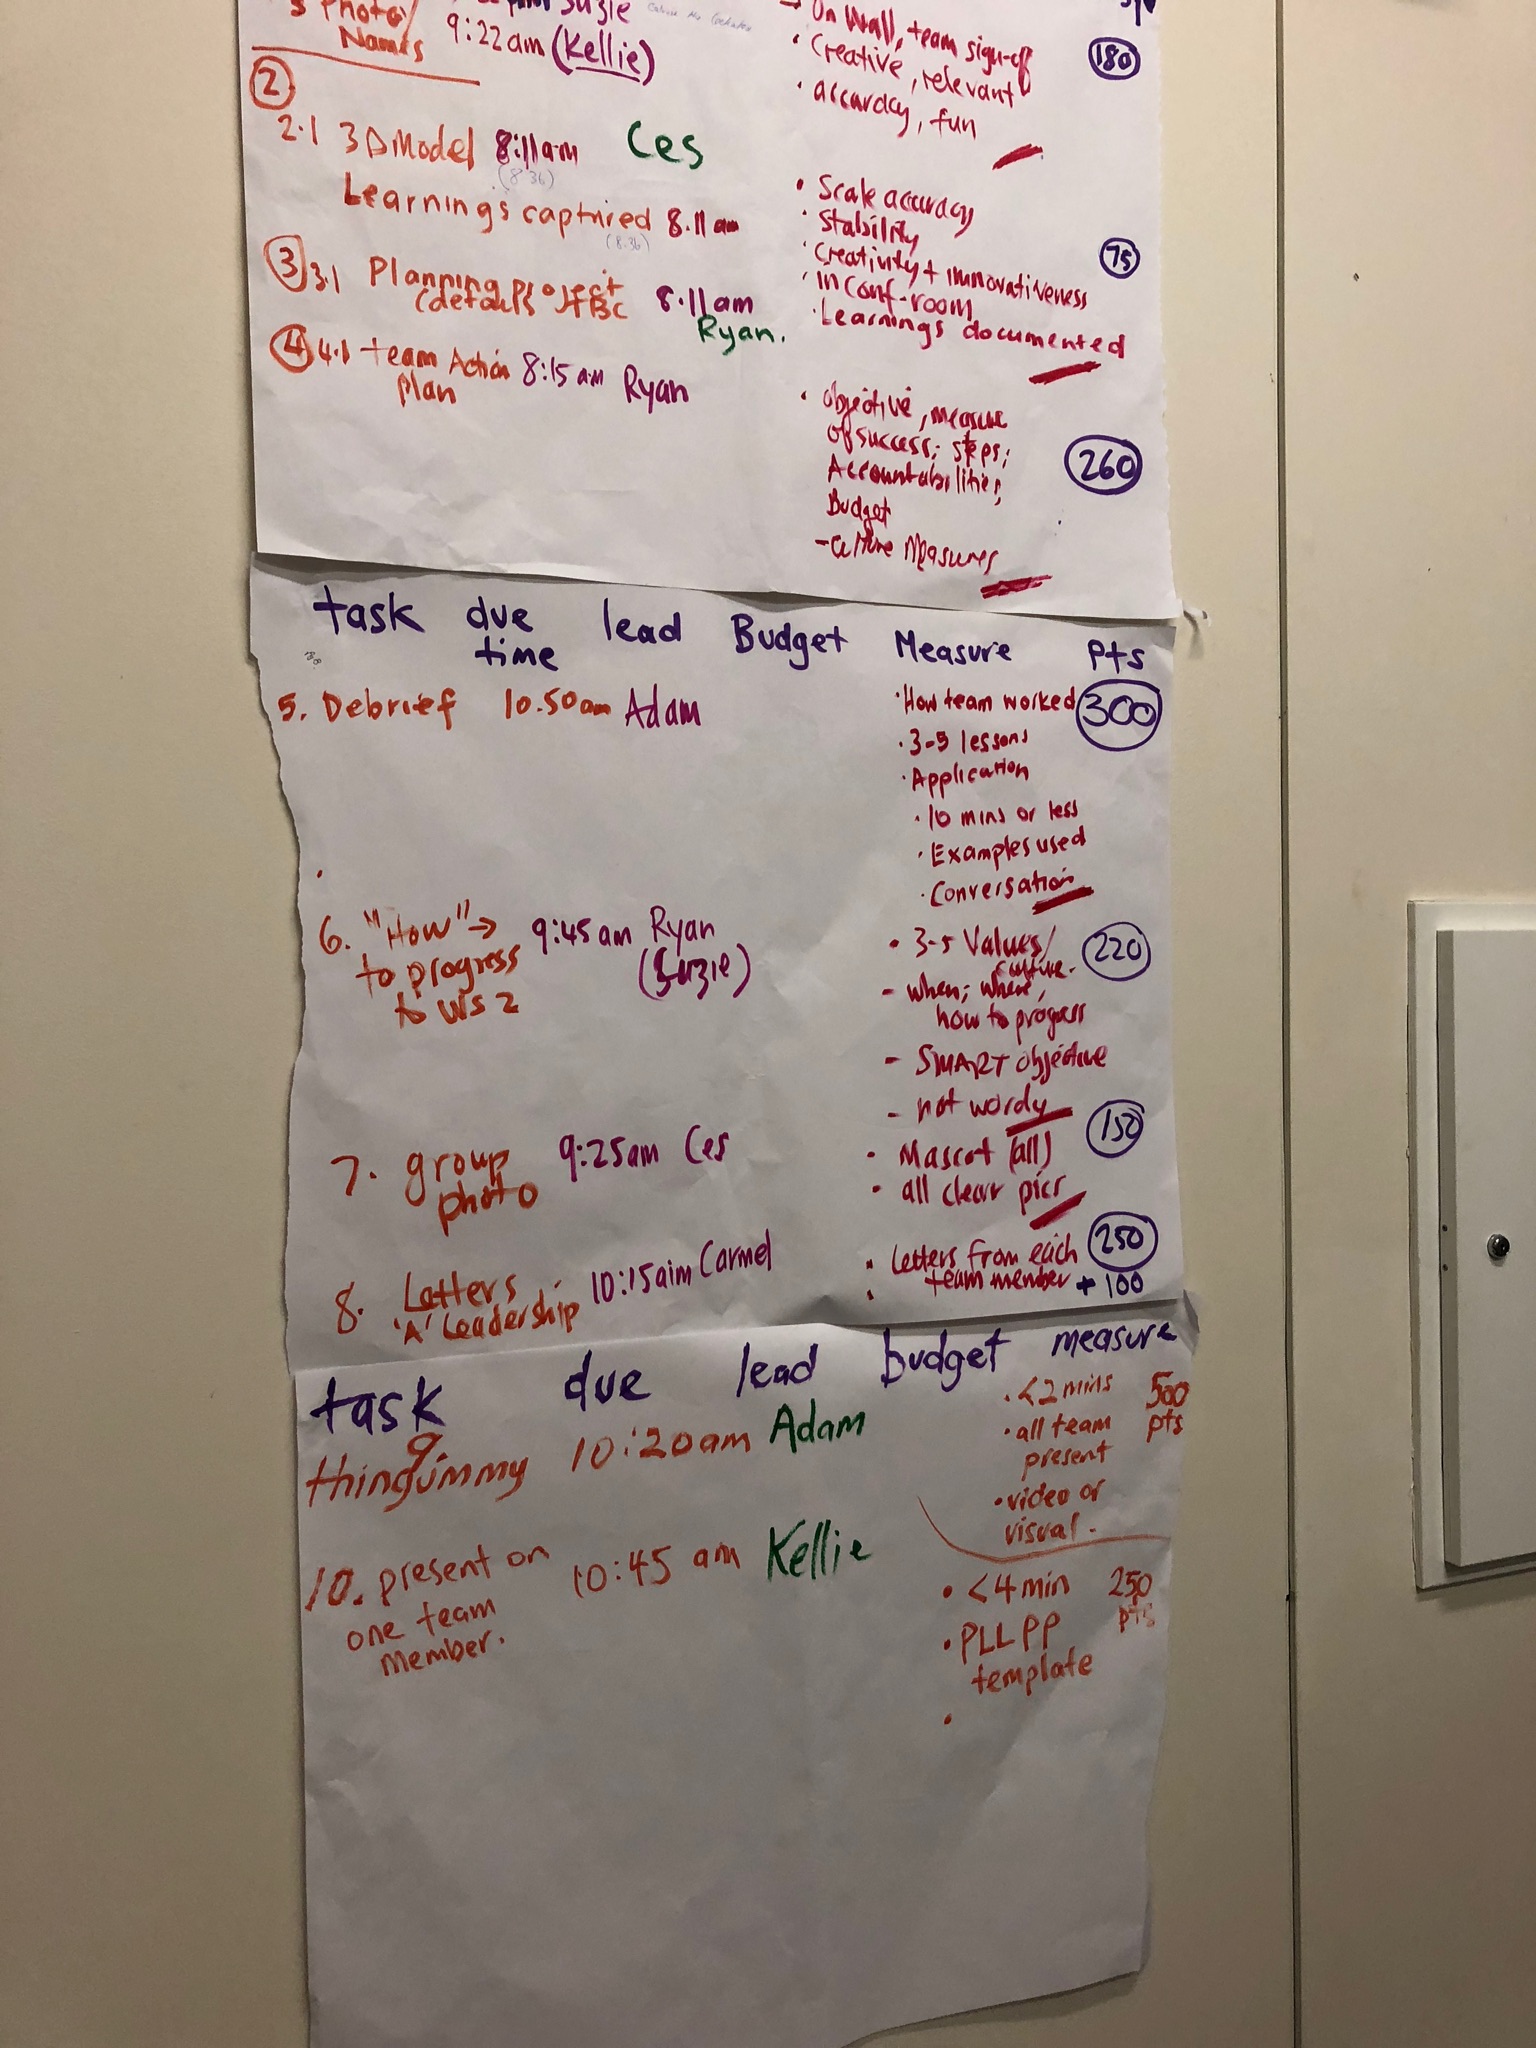 Photo/ Suzie
Names 9:22am (Kellie)
→ On Wall, team sign-off
• Creative, relevant
• accuracy, fun
180
2
2.1 3D Model 8:11am Ces
(8.36)
Learnings captured 8.11am
(8.36)
• Scale accuracy
• Stability
• Creativity + innovativeness
• in conf-room
• Learnings documented
75
3 3.1 Planning project 8.11am
(details TBC Ryan.
4 4.1 team Action 8:15am Ryan
plan
• objective, measure
of success; steps;
Accountabilities,
Budget
- culture Measures
260
task due lead Budget Measure pts
time
5. Debrief 10.50am Adam
• How team worked 300
• 3-5 lessons
• Application
• 10 mins or less
• Examples used
• Conversation
6. "How" → 9:45am Ryan
to progress (Suzie)
to WS 2
• 3-5 Values/ 220
culture.
- when; where,
how to progress
- SMART objective
- not wordy
7. group 9:25am Ces
photo
• Mascot (all) 150
• all clear pics
8. Letters 10:15aim Carmel
'A' Leadership
• Letters from each 250
team member + 100
task due lead budget measure
9.
thingummy 10:20am Adam
• <2 mins 500
• all team pts
present
• video or
visual.
10. present on 10:45 am Kellie
one team
member.
• <4 min 250
• PLLPP pts
template